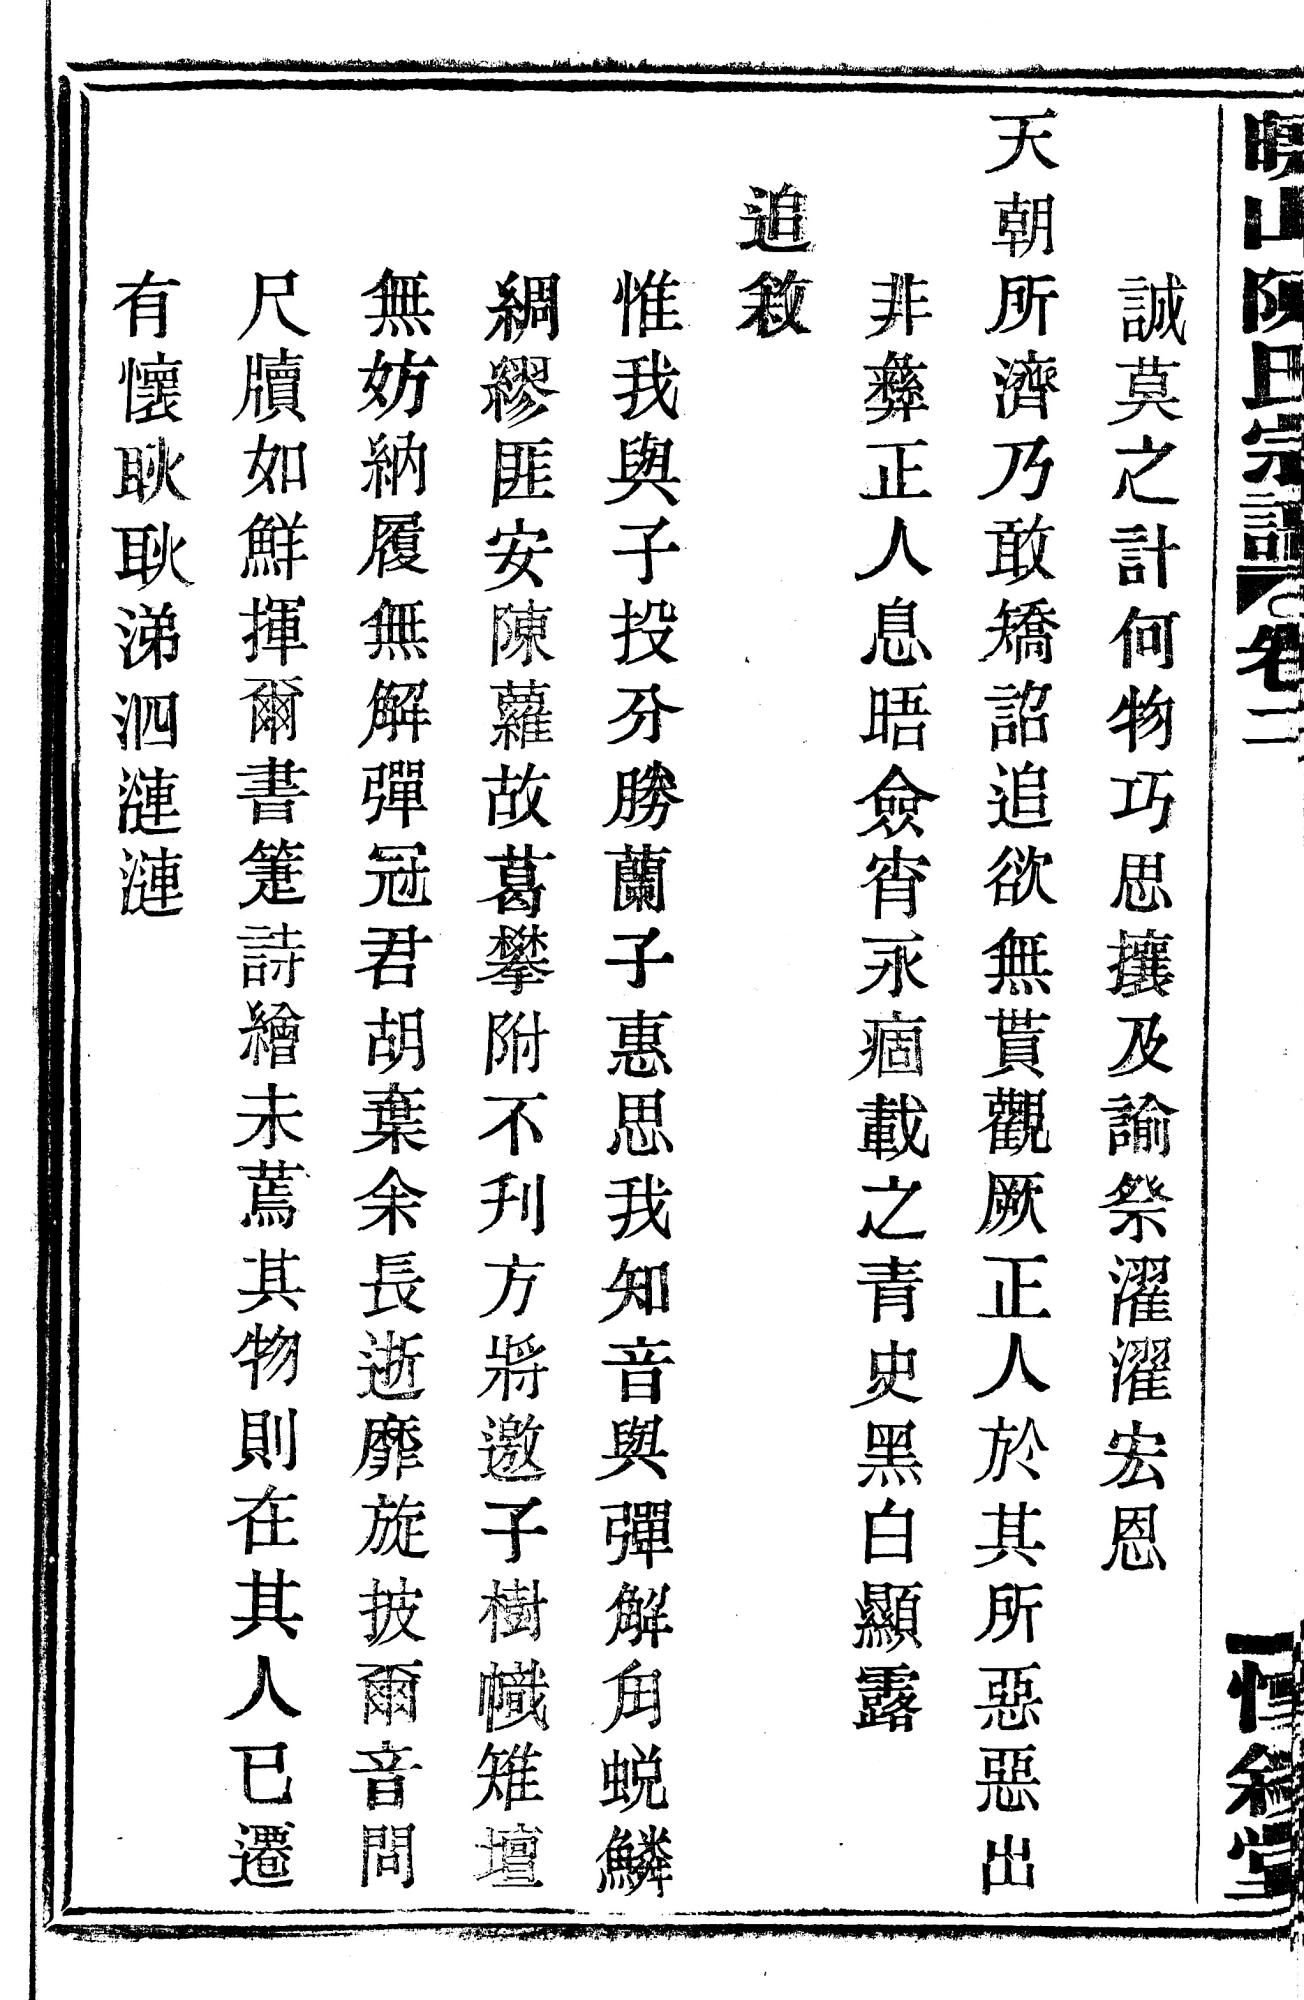 山陳氏宗譜 卷二 惇敘堂
誠莫之計何物巧思攘及諭祭濯濯宏恩
天朝所濟乃敢矯詔追欲無貰觀厥正人於其所惡惡出
非彝正人息晤僉宵永痼載之青史黑白顯露
追敘
惟我與子投分勝蘭子惠思我知音與彈解角蛻鱗
綢繆匪安陳蘿故葛攀附不刋方將邀子樹幟雉壇
無妨納履無解彈冠君胡棄余長逝靡旋披爾音問
尺牘如鮮揮爾書箑詩繪未蔫其物則在其人已遷
有懷耿耿涕泗漣漣